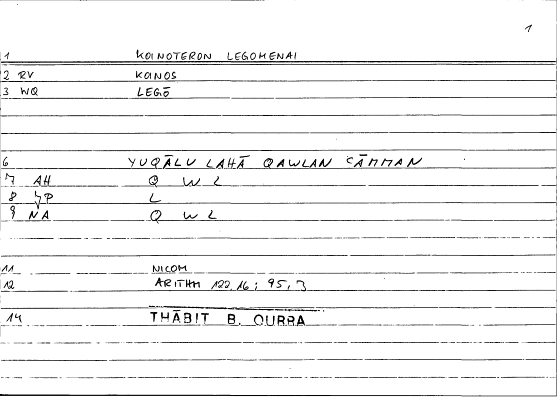 1
1 KOINOTERON LEGOMENAI
2 RV KOINOS
3 WQ LEGŌ
6 YUQĀLU LAHĀ QAWLAN ʿĀMMAN
7 AH Q W L
8 L
9 NA Q W L
11 NICOM
12 ARITHM 122.16; 95,7
14 THĀBIT B. QURRA